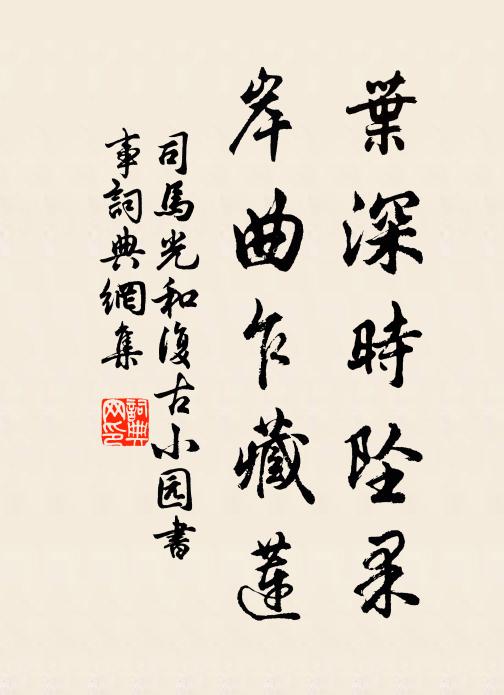 葉深時墜果
岸曲乍藏蓮
司馬光和復古小园書
事詞典網集
詞典網印